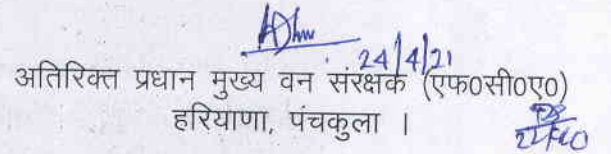 24/4/21
अतिरिक्त प्रधान मुख्य वन संरक्षक (एफ0सी0ए0)
हरियाणा, पंचकुला ।